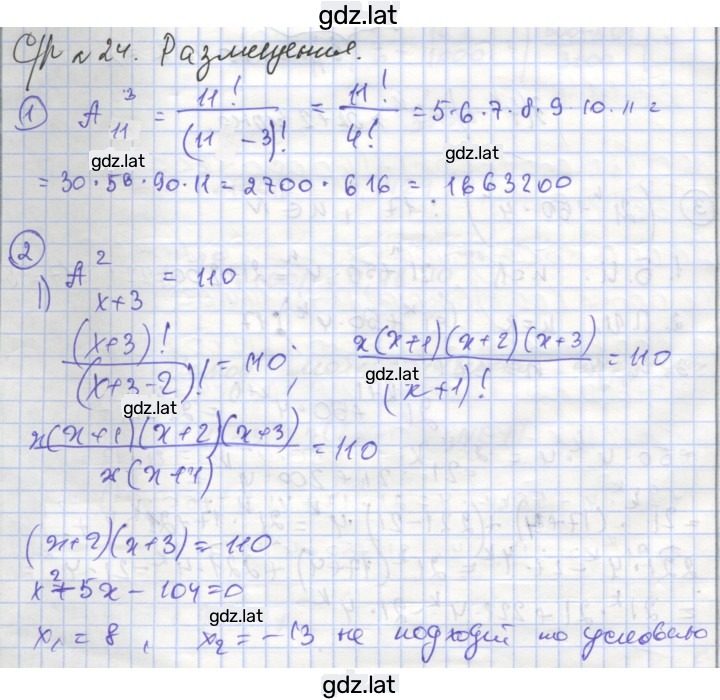 gdz.lat
С/р № 24. Размещения.
1) A₁₁³ = 11! / (11 - 3)! = 11! / 4! = 5·6·7·8·9·10·11 =
gdz.lat gdz.lat
= 30·56·90·11 = 2700·616 = 1663200
2)
1) A²ₓ₊₃ = 110
(x+3)! / (x+3-2)! = 110; x(x+1)(x+2)(x+3) / (x+1)! = 110
gdz.lat
gdz.lat
x(x+1)(x+2)(x+3) / x(x+1) = 110
(x+2)(x+3) = 110
x²+5x - 104 = 0
gdz.lat
x₁ = 8, x₂ = -13 не подходит по условию
gdz.lat